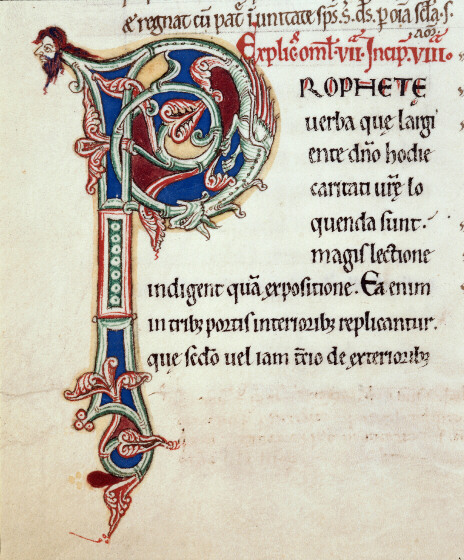 & regnat cū pat̄ ī unitate sp̄s s̄. d̄s. p om̄ia sc̄la. s.
Explic̄ om̄l. vii. Incip̄. viii.
PROPHETĘ
verba quę largi
ente dn̄o hodie
caritati vr̄ę lo
quenda sunt.
magis lectione
indigent quā expositione. Ea enim
in tribꝫ portis interioribꝫ replicantur.
que sc̄do vel iam t̄cio de exterioribꝫ